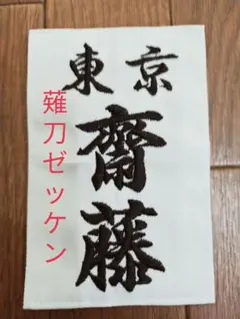 東京
齋藤
薙刀ゼッケン